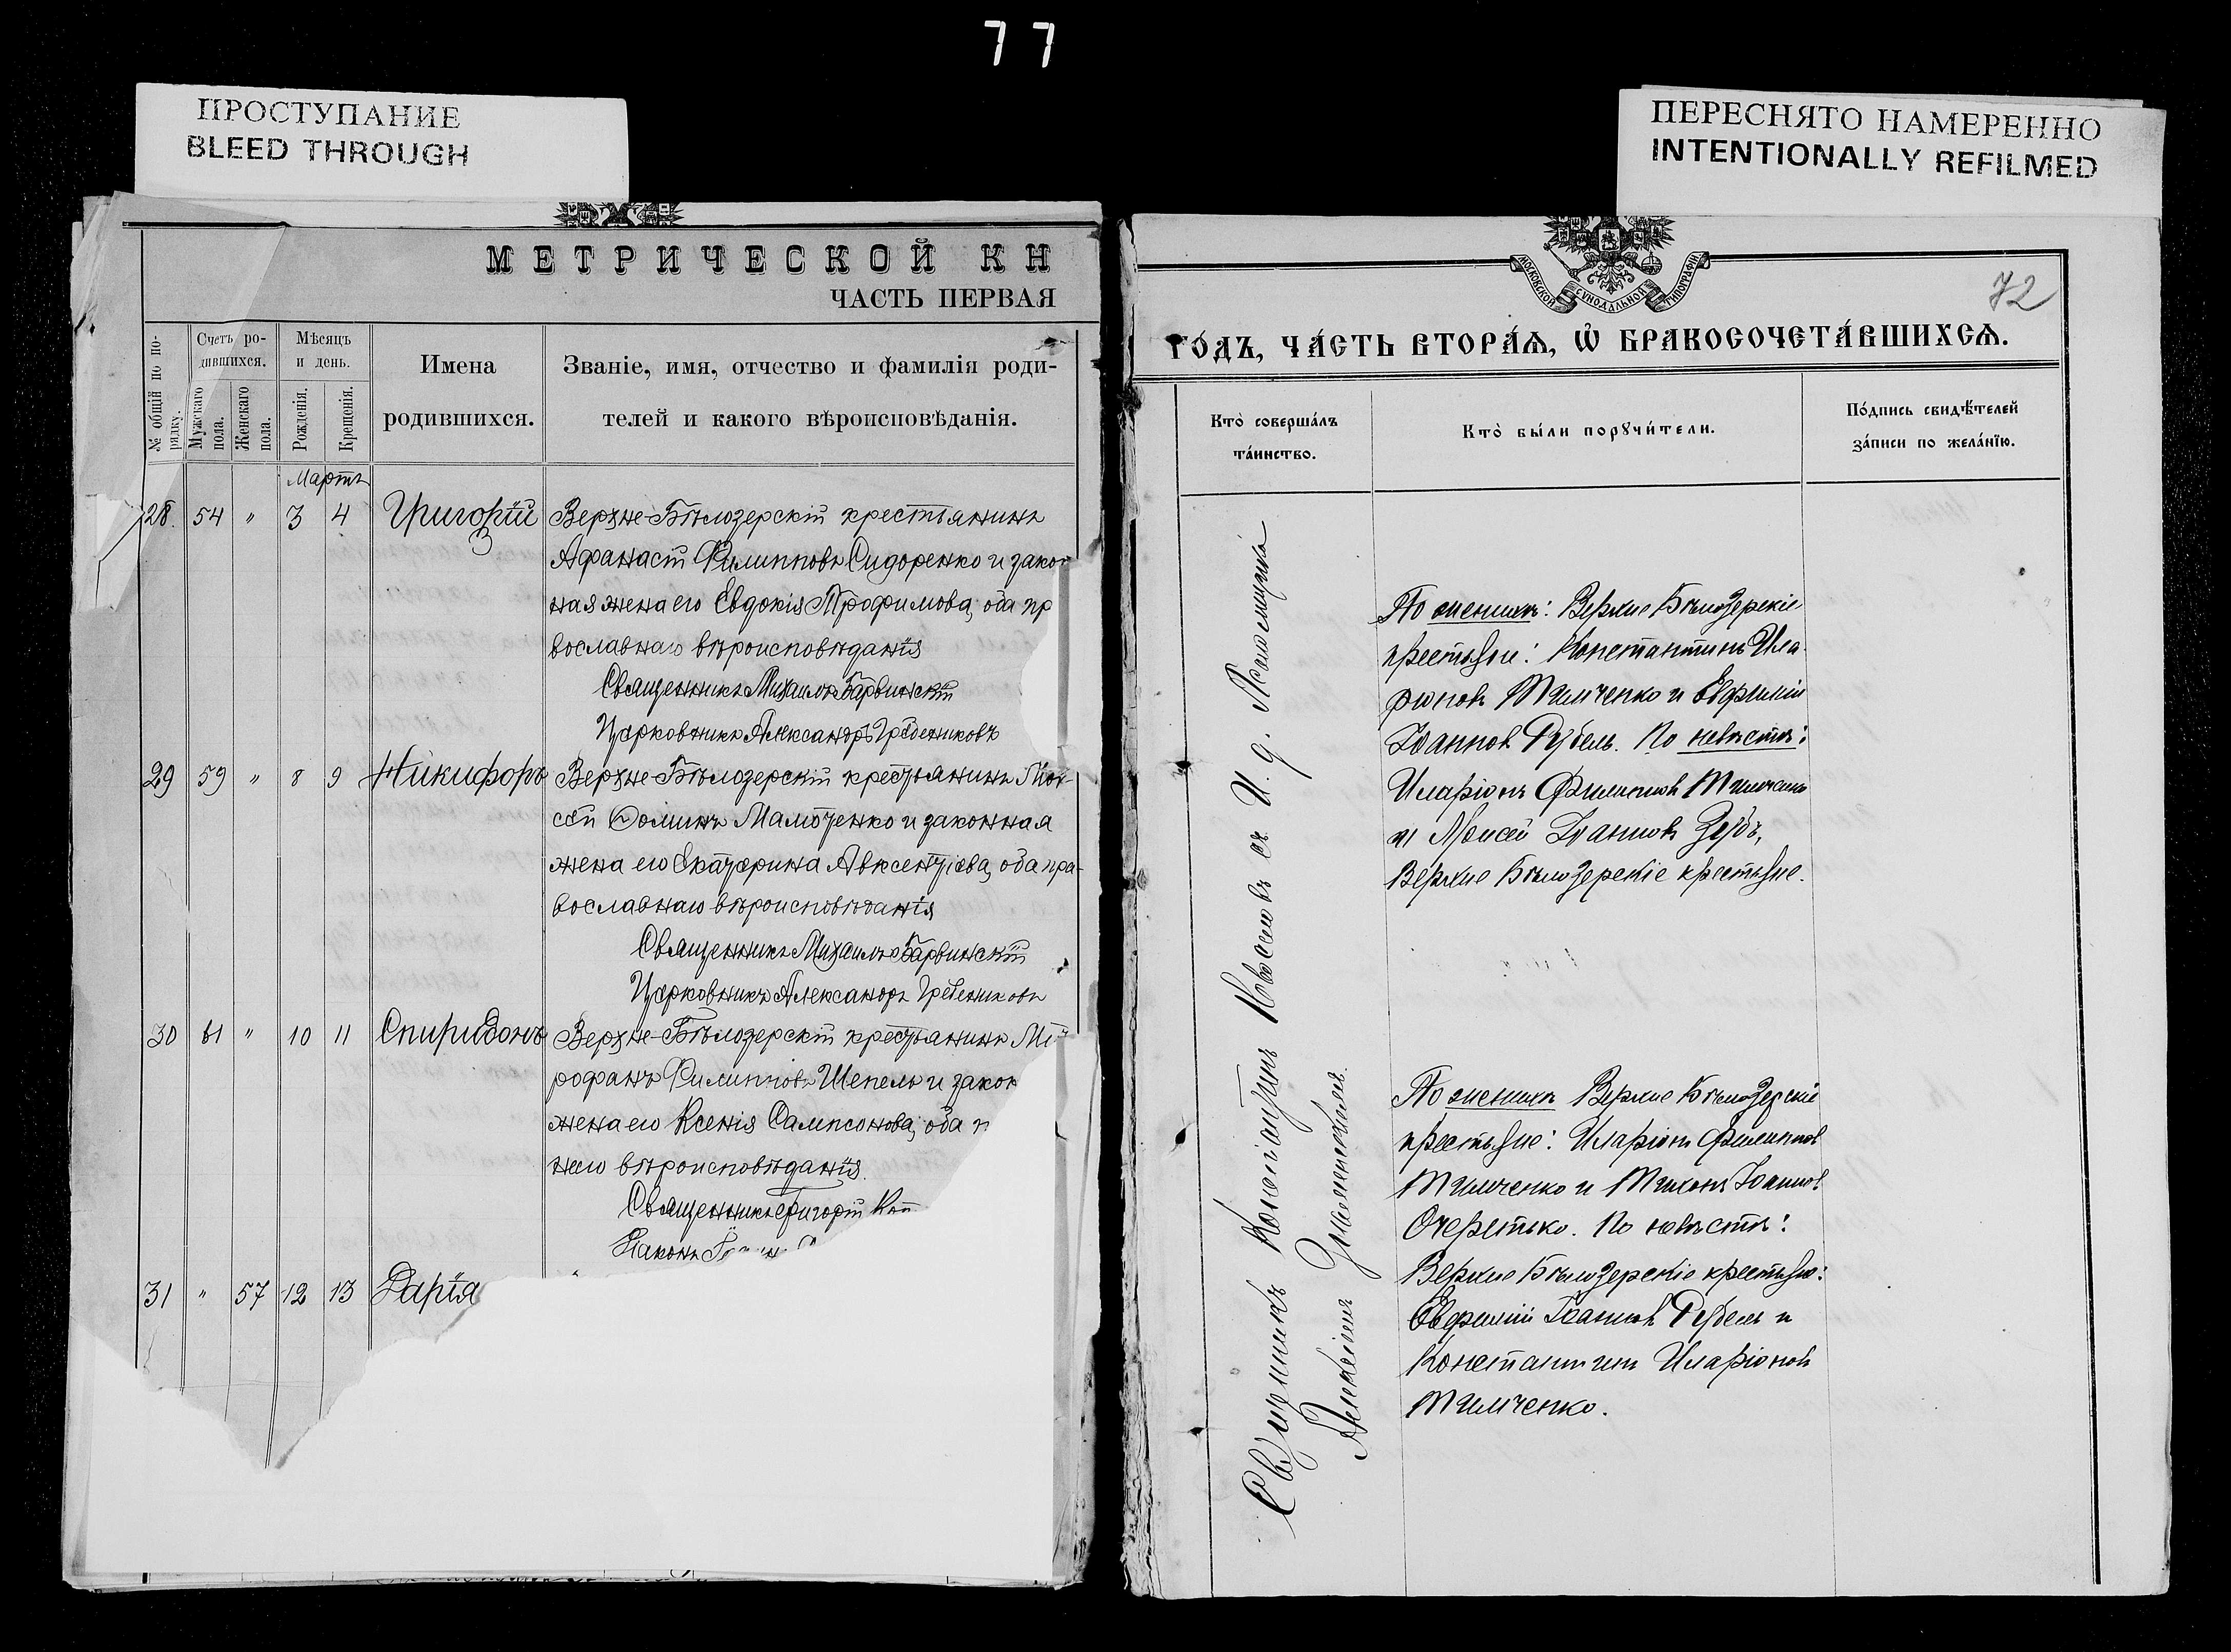 77
ПРОСТУПАНИЕ
BLEED THROUGH
ПЕРЕСНЯТО НАМЕРЕННО
INTENTIONALLY REFILMED
МЕТРИЧЕСКОЙ КН
ЧАСТЬ ПЕРВАЯ
№ общій по порядку.
Счетъ родившихся.
Мужскаго пола.
Женскаго пола.
Мѣсяцъ и день.
Рожденія.
Крещенія.
Имена
родившихся.
Званіе, имя, отчество и фамилія роди-
телей и какого вѣроисповѣданія.
Мартъ
28. 54 " 3 4 Григорій Верхне-Бѣлозерскій крестьянинъ
Афанасій Филипповъ Сидоренко и закон
ная жена его Евдокія Трофимова, оба пр
вославнаго вѣроисповѣданія
Священникъ Михаилъ Барвинскій
Церковникъ Александръ Гребенниковъ
29 59 " 8 9 Никифоръ Верхне-Бѣлозерскій крестьянинъ Мои-
сей Фоминъ Мамотенко и законная
жена его Екатерина Авксентіева, оба пра-
вославнаго вѣроисповѣданія
Священникъ Михаилъ Барвинскій
Церковникъ Александръ Гребениковъ
30 61 " 10 11 Спиридонъ Верхне-Бѣлозерскій крестьянинъ Ми
рофанъ Филипповъ Шепель и закон
жена его Ксенія Сампсонова, оба п
наго вѣроисповѣданія.
Священникъ Григорій
Діаконъ
31 " 57 12 13 Дарія
МОСКОВСКОЙ СѴНОДАЛЬНОЙ ТИПОГРАФІИ
72
ГО́ДЪ, ЧА́СТЬ ВТОРА́Ѧ, Ѡ҆ БРАКОСОЧЕТА́ВШИХСѦ.
Кто̀ соверша́лъ
та́инство.
Кто̀ бы́ли порꙋчи́тели.
По́дпись свидѣ́телей
за́писи по жела́нїю.
Священникъ Константинъ Новоселовъ съ И. д. Псаломщика
Алексѣемъ Знаменскимъ.
По женихѣ: Верхне Бѣлозерскіе
крестьяне: Константинъ Ила-
ріоновъ Тимченко и Евфимій
Іоанновъ Рубель. По невѣстѣ:
Иларіонъ Филипповъ Тимченко
и Моисей Іоанновъ Зубъ,
Верхне Бѣлозерскіе крестьяне.
По женихѣ Верхне Бѣлозерскіе
крестьяне: Иларіонъ Филипповъ
Тимченко и Тихонъ Іоанновъ
Очеретько. По невѣстѣ:
Верхне Бѣлозерскіе крестьяне:
Евфимій Іоанновъ Рубель и
Константинъ Иларіоновъ
Тимченко.